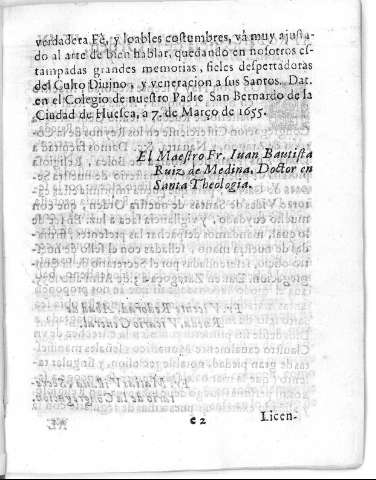 verdadera Fè, y loables costumbres, và muy ajusta-
do al arte de bien hablar, quedando en nosotros es-
tampadas grandes memorias, fieles despertadoras
del Culto Diuino, y veneracion a sus Santos. Dat.
en el Colegio de nuestro Padre San Bernardo de la
Ciudad de Huesca, a 7. de Março de 1655.
El Maestro Fr. Iuan Bautista
Ruiz de Medina, Doctor en
Santa Theologia.
c 2
Licen-